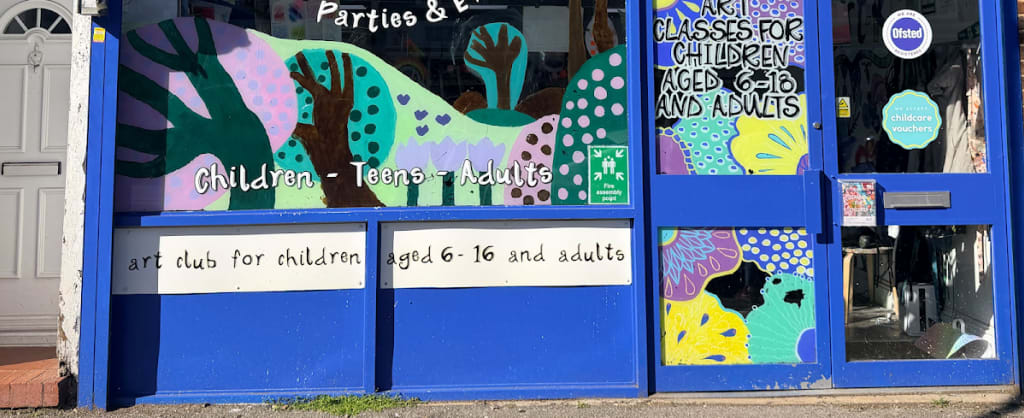 Parties &
Children - Teens - Adults
Fire
assembly
point
art club for children
aged 6 - 16 and adults
ART
CLASSES FOR
CHILDREN
AGED 6-18
AND ADULTS
WE ARE
Ofsted
REGISTERED
WE ACCEPT
childcare
vouchers